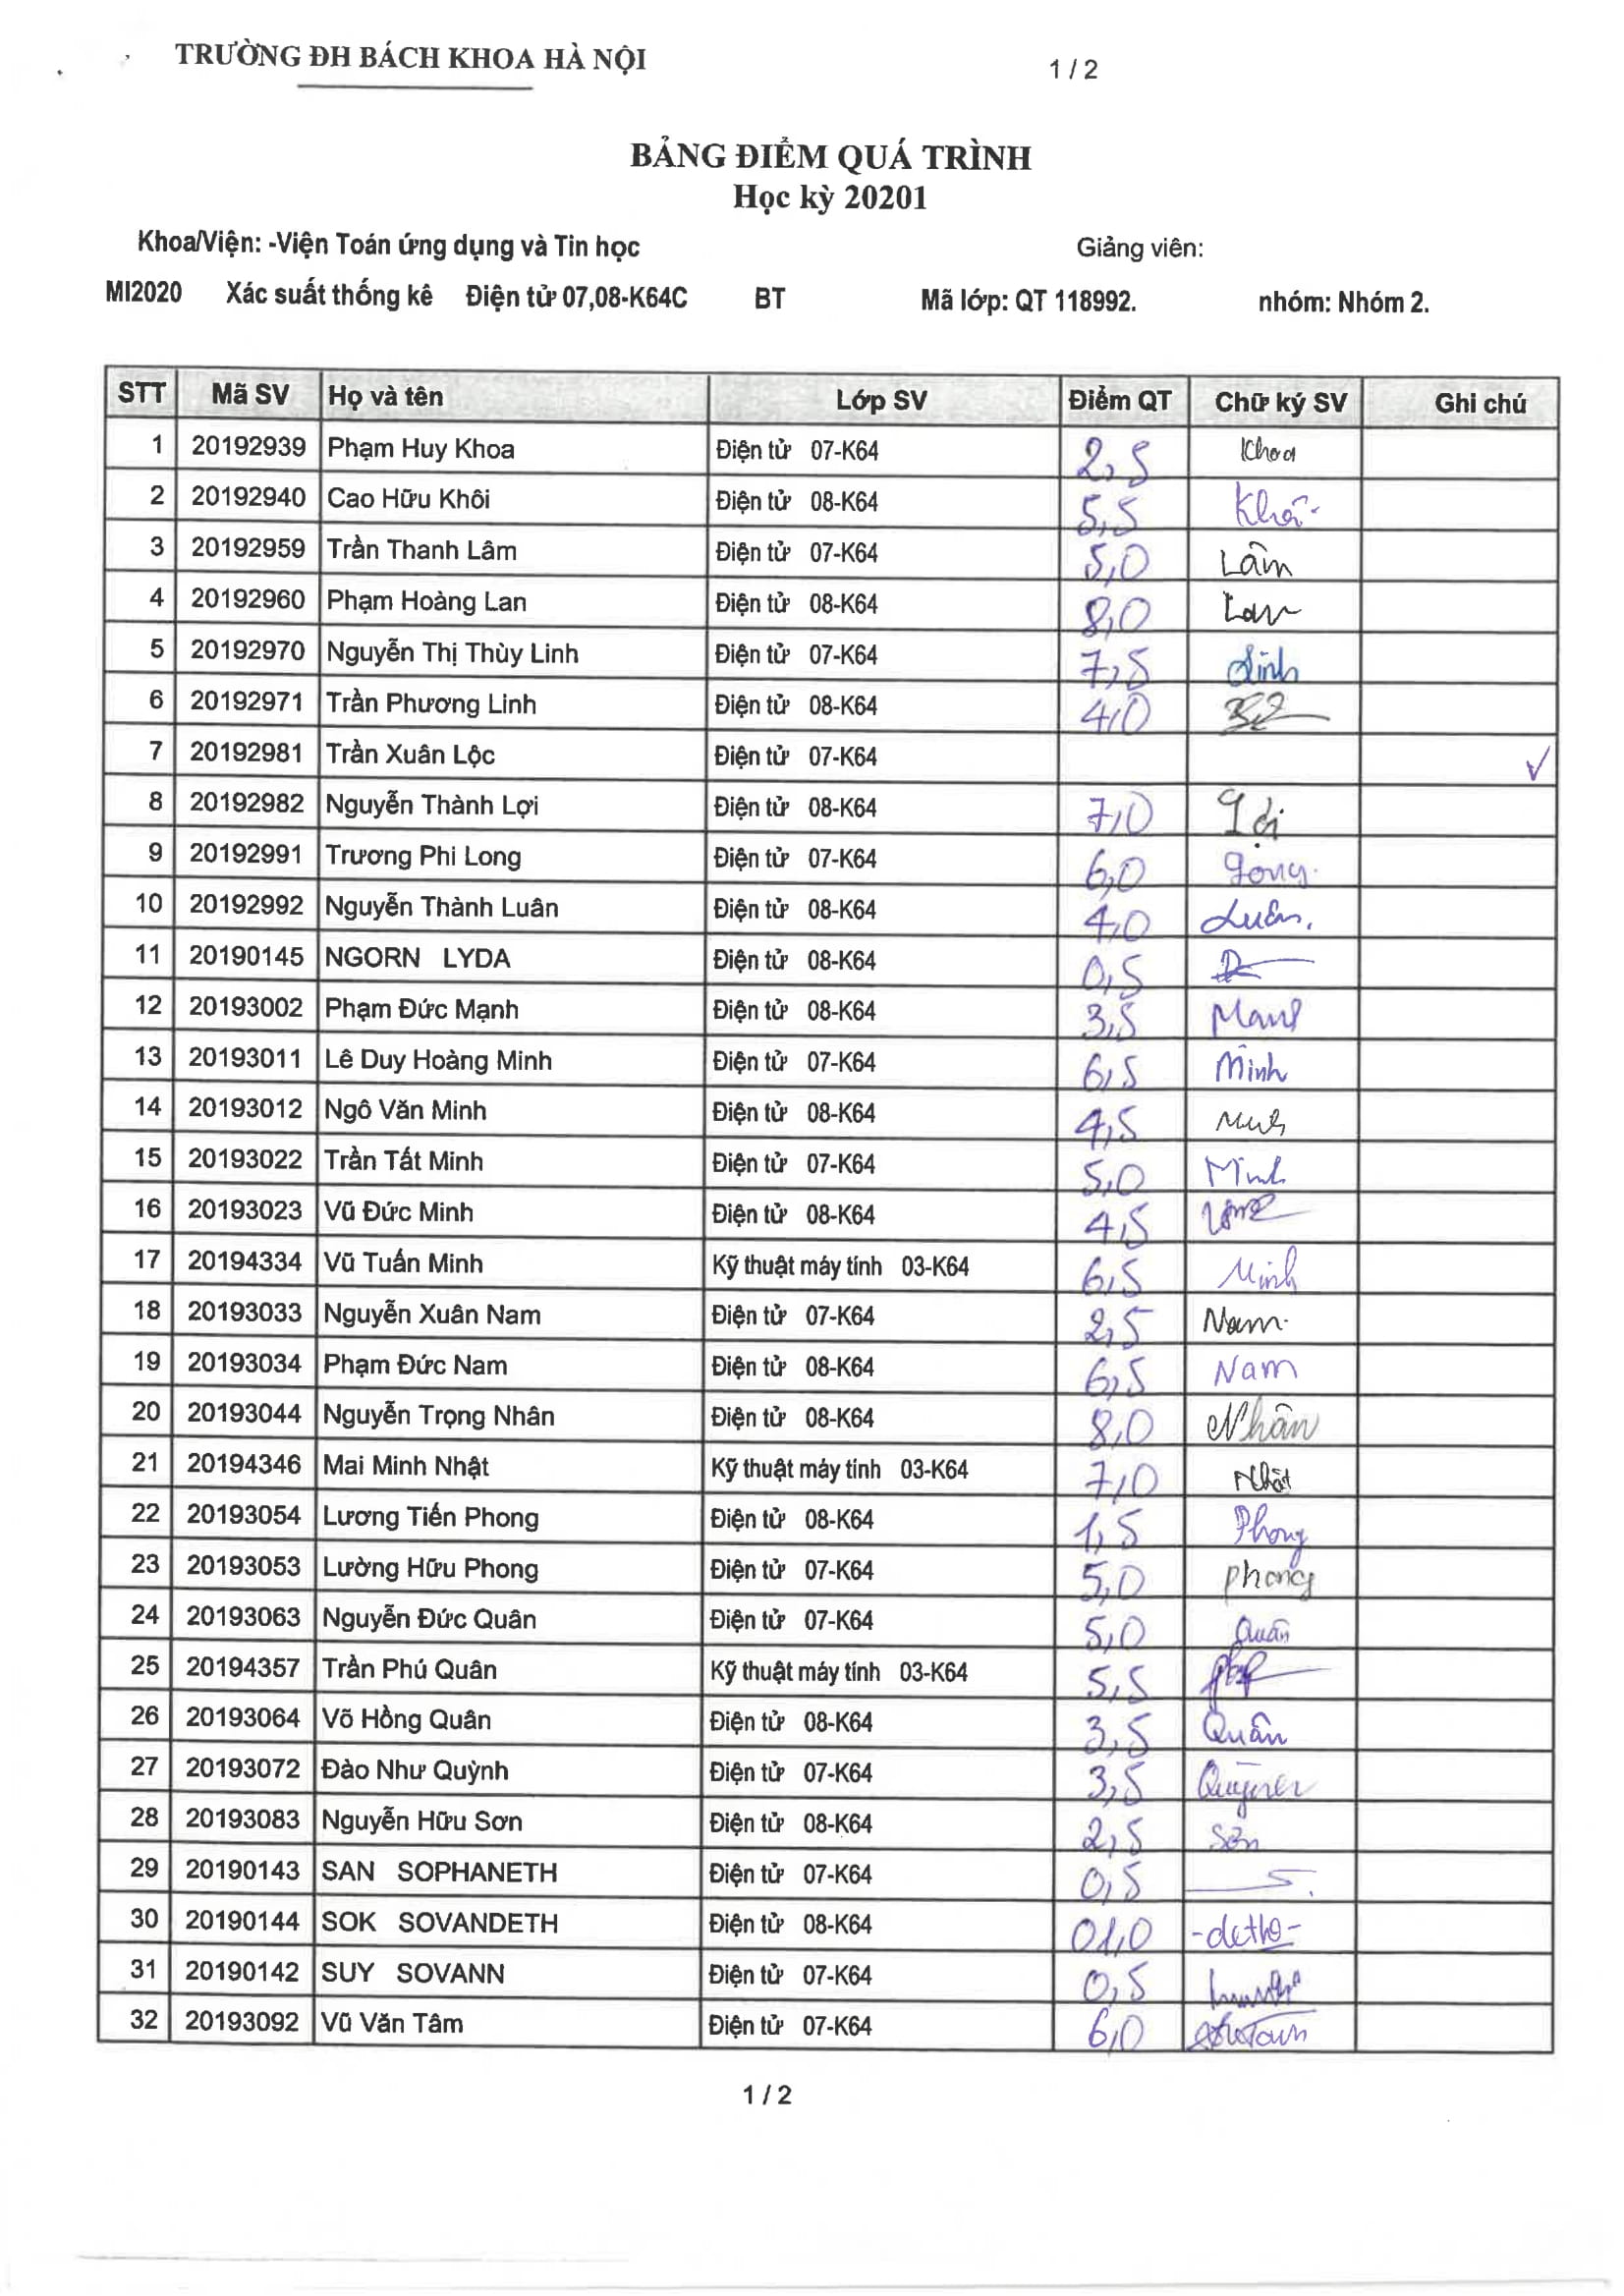 TRƯỜNG ĐH BÁCH KHOA HÀ NỘI 1 / 2
BẢNG ĐIỂM QUÁ TRÌNH
Học kỳ 20201
Khoa/Viện: -Viện Toán ứng dụng và Tin học Giảng viên:
MI2020 Xác suất thống kê Điện tử 07,08-K64C BT Mã lớp: QT 118992. nhóm: Nhóm 2.
STT Mã SV Họ và tên Lớp SV Điểm QT Chữ ký SV Ghi chú
1 20192939 Phạm Huy Khoa Điện tử 07-K64 2,5 Khoa
2 20192940 Cao Hữu Khôi Điện tử 08-K64 5,5 Khôi
3 20192959 Trần Thanh Lâm Điện tử 07-K64 5,0 Lâm
4 20192960 Phạm Hoàng Lan Điện tử 08-K64 8,0 Lan
5 20192970 Nguyễn Thị Thùy Linh Điện tử 07-K64 7,5 Linh
6 20192971 Trần Phương Linh Điện tử 08-K64 4,0
7 20192981 Trần Xuân Lộc Điện tử 07-K64 ✓
8 20192982 Nguyễn Thành Lợi Điện tử 08-K64 7,0 Lợi
9 20192991 Trương Phi Long Điện tử 07-K64 6,0 Long.
10 20192992 Nguyễn Thành Luân Điện tử 08-K64 4,0 Luân.
11 20190145 NGORN LYDA Điện tử 08-K64 0,5
12 20193002 Phạm Đức Mạnh Điện tử 08-K64 3,5 Manh
13 20193011 Lê Duy Hoàng Minh Điện tử 07-K64 6,5 Minh
14 20193012 Ngô Văn Minh Điện tử 08-K64 4,5 Minh
15 20193022 Trần Tất Minh Điện tử 07-K64 5,0 Minh
16 20193023 Vũ Đức Minh Điện tử 08-K64 4,5
17 20194334 Vũ Tuấn Minh Kỹ thuật máy tính 03-K64 6,5 Minh
18 20193033 Nguyễn Xuân Nam Điện tử 07-K64 2,5 Nam.
19 20193034 Phạm Đức Nam Điện tử 08-K64 6,5 Nam
20 20193044 Nguyễn Trọng Nhân Điện tử 08-K64 8,0 Nhân
21 20194346 Mai Minh Nhật Kỹ thuật máy tính 03-K64 7,0 Nhật
22 20193054 Lương Tiến Phong Điện tử 08-K64 1,5 Phong
23 20193053 Lường Hữu Phong Điện tử 07-K64 5,0 Phong
24 20193063 Nguyễn Đức Quân Điện tử 07-K64 5,0 Quân
25 20194357 Trần Phú Quân Kỹ thuật máy tính 03-K64 5,5
26 20193064 Võ Hồng Quân Điện tử 08-K64 3,5 Quân
27 20193072 Đào Như Quỳnh Điện tử 07-K64 3,5 Quỳnh
28 20193083 Nguyễn Hữu Sơn Điện tử 08-K64 2,5 Sơn
29 20190143 SAN SOPHANETH Điện tử 07-K64 0,5
30 20190144 SOK SOVANDETH Điện tử 08-K64 01,0 -deth-
31 20190142 SUY SOVANN Điện tử 07-K64 0,5
32 20193092 Vũ Văn Tâm Điện tử 07-K64 6,0
1 / 2